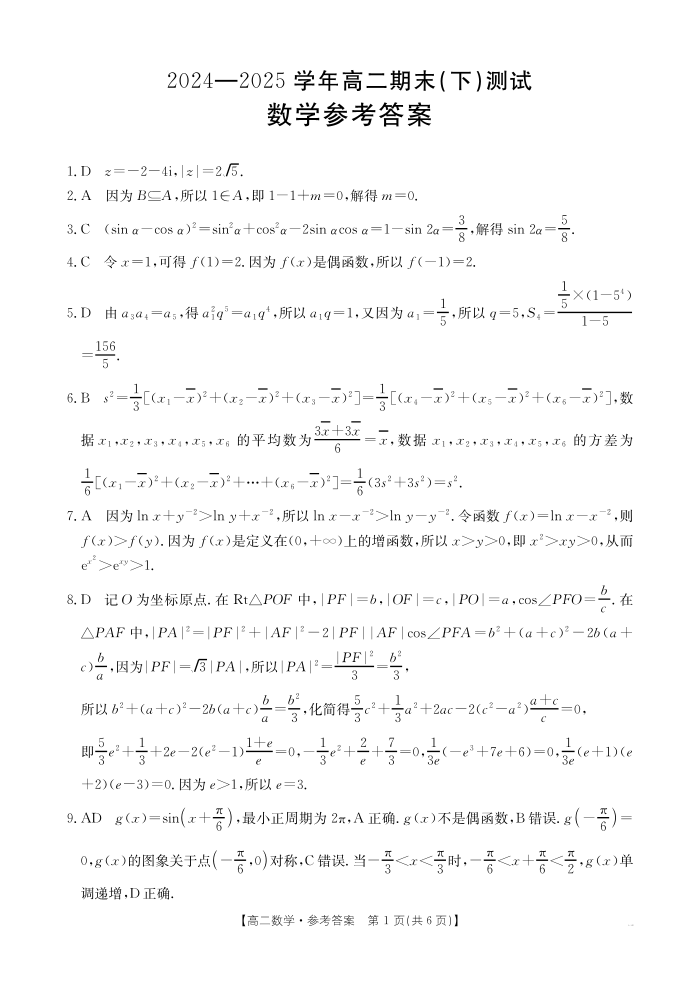 2024—2025 学年高二期末(下)测试
数学参考答案
1. D z=-2-4i,|z|=2√5.
2. A 因为 B⊆A,所以 1∈A,即 1-1+m=0,解得 m=0.
3. C (sin α-cos α)²=sin²α+cos²α-2sin αcos α=1-sin 2α=3/8,解得 sin 2α=5/8.
4. C 令 x=1,可得 f(1)=2. 因为 f(x)是偶函数,所以 f(-1)=2.
5. D 由 a₃a₄=a₅,得 a₁²q⁵=a₁q⁴,所以 a₁q=1,又因为 a₁=1/5,所以 q=5,S₄=(1/5×(1-5⁴))/(1-5)
=156/5.
6. B s²=1/3[(x₁-x̅)²+(x₂-x̅)²+(x₃-x̅)²]=1/3[(x₄-x̅)²+(x₅-x̅)²+(x₆-x̅)²],数
据 x₁,x₂,x₃,x₄,x₅,x₆ 的平均数为(3x̅+3x̅)/6=x̅,数据 x₁,x₂,x₃,x₄,x₅,x₆ 的方差为
1/6[(x₁-x̅)²+(x₂-x̅)²+⋯+(x₆-x̅)²]=1/6(3s²+3s²)=s².
7. A 因为 ln x+y⁻²>ln y+x⁻²,所以 ln x-x⁻²>ln y-y⁻². 令函数 f(x)=ln x-x⁻²,则
f(x)>f(y). 因为 f(x)是定义在(0,+∞)上的增函数,所以 x>y>0,即 x²>xy>0,从而
e^(x²)>e^(xy)>1.
8. D 记 O 为坐标原点. 在 Rt△POF 中,|PF|=b,|OF|=c,|PO|=a,cos∠PFO=b/c. 在
△PAF 中,|PA|²=|PF|²+|AF|²-2|PF||AF|cos∠PFA=b²+(a+c)²-2b(a+
c)b/a,因为|PF|=√3|PA|,所以|PA|²=|PF|²/3=b²/3,
所以 b²+(a+c)²-2b(a+c)b/a=b²/3,化简得5/3c²+1/3a²+2ac-2(c²-a²)(a+c)/c=0,
即5/3e²+1/3+2e-2(e²-1)(1+e)/e=0,-1/3e²+2/e+7/3=0,1/3e(-e³+7e+6)=0,1/3e(e+1)(e
+2)(e-3)=0. 因为 e>1,所以 e=3.
9. AD g(x)=sin(x+π/6),最小正周期为 2π,A 正确. g(x)不是偶函数,B 错误. g(-π/6)=
0,g(x)的图象关于点(-π/6,0)对称,C 错误. 当-π/3<x<π/3时,-π/6<x+π/6<π/2,g(x)单
调递增,D 正确.
【高二数学·参考答案 第 1 页(共 6 页)】